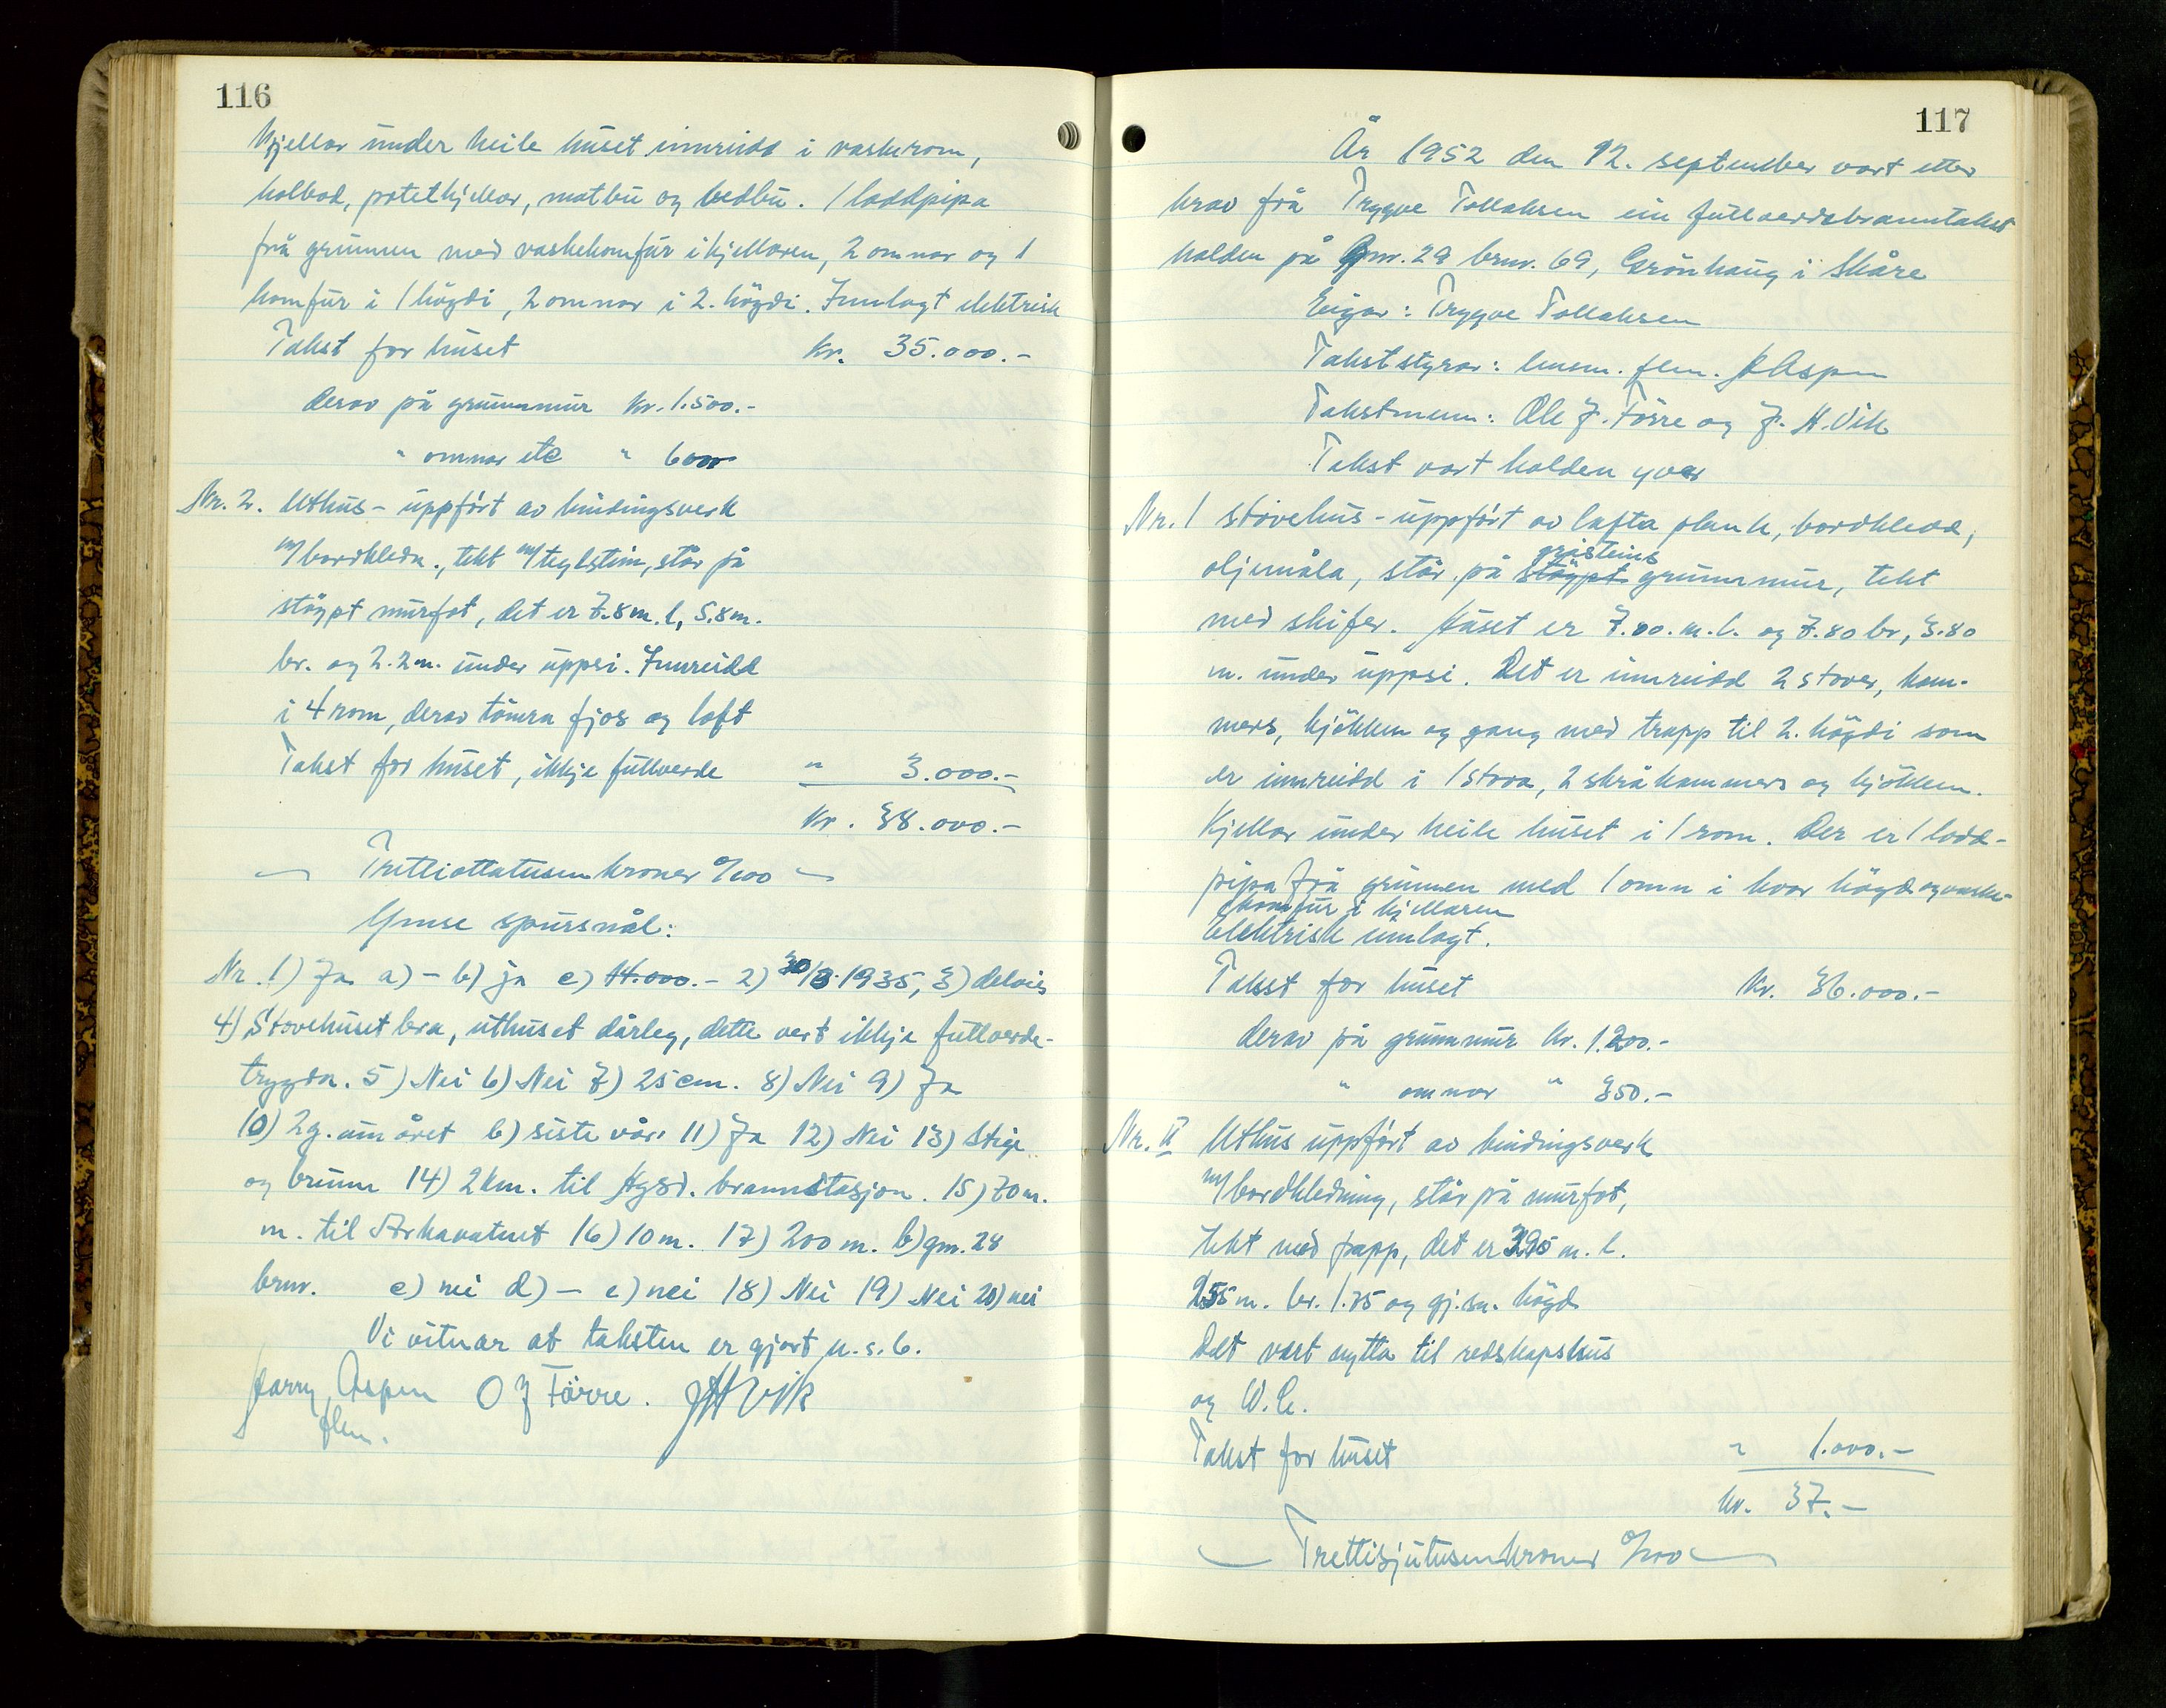 116
Kjellar under heile huset innreidd i vaskerom,
kolbod, potetkjellar, matbu og vedbu. 1 loddpipa
frå grunnen med vaskekomfur i kjellaren, 2 omnar og 1
komfur i 1 högdi, 2 omnar i 2. högdi. Innlagt elektrisk
Takst for huset kr. 35.000.-
derav på grunnmur kr. 1.500.-
" omnar etc " 600
Nr. 2. Uthus - uppfört av bindingsverk
m/bordkledn., tekt m/teglstein, står på
stöypt murfot, det er 7.8 m. l, 5.8 m.
br. og 2.2 m. under uppsi. Innreidd
i 4 rom, derav tömra fjos og loft
Takst for huset, ikkje fullverde " 3.000.-
kr. 38.000.-
Trettiottatusen kroner 0/100
Ymse spursmål:
Nr. 1) Ja a) - b) ja c) 14.000.- 2) 30/3.1935, 3) delvis
4) Stovehuset bra, uthuset dårleg, dette vert ikkje fullverde-
trygda. 5) Nei 6) Nei 7) 25 cm. 8) Nei 9) Ja
10) 2 g. um året b) siste vår 11) Ja 12) Nei 13) Stige
og brunn 14) 2 km. til Hgsd. brannstasjon. 15) 70 m.
m. til 16) 10 m. 17) 200 m. b) gnr. 28
brnr. c) nei d) - e) nei 18) Nei 19) Nei 20) nei
Vi vitnar at taksten er gjort u. s. b.
Harry Aspen O J Förre. JH Vik
flm.
117
År 1952 den 12. september vart etter
krav frå Trygve Tollaksen ein fullverdebranntakst
halden på gnr. 29 brnr. 69, Grönhaug i Skåre
Eigar: Trygve Tollaksen
Takststyrar: lensm. flm. H Aspen
Takstmenn: Ole J. Förre og J. H. Vik
Takst vart halden yver
Nr. 1 stovehus - uppfört av lafta plank, bordkledd,
oljemåla, står på stöypt gråsteins grunnmur, tekt
med skifer. Huset er 7.80. m. l. og 7.80 br, 3.80
m. under uppsi. Det er innreidd 2 stover, kam-
mers, kjökken og gang med trapp til 2. högdi som
er innreidd i 1 stova, 2 skråkammers og kjökken.
Kjellar under heile huset i 1 rom. Der er 1 lodd-
pipa frå grunnen med 1 omn i hvor högd og vaske-
komfur i kjellaren
elektrisk innlagt.
Takst for huset kr. 36.000.-
derav på grunnmur kr. 1.200.-
" omnar " 350.-
Nr. II Uthus uppfört av bindingsverk
m/bordkledning, står på murfot,
tekt med papp, det er 3.95 m. l.
2.55 m. br. 1.75 og gj.sn. högd
Det vert nytta til redskapshus
og W.C.
Takst for huset " 1.000.-
kr. 37.-
Trettisjutusenkroner 0/100